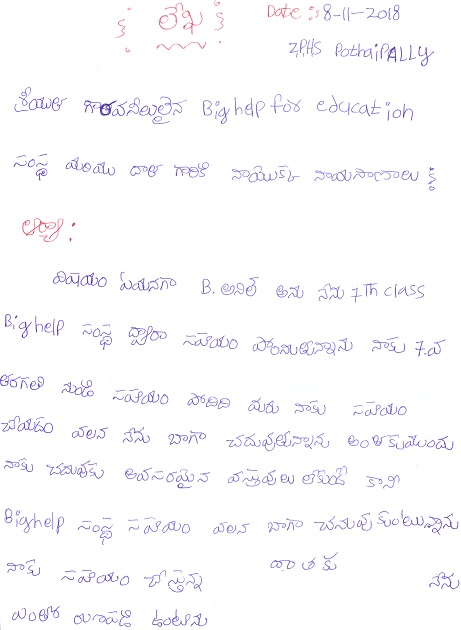 లేఖ
Date :- 8-11-2018
ZPHS PothaiPALLY
శ్రీయుత గౌరవనీయులైన Big help for education
సంస్థ మరియు దాత గారికి నాయొక్క నమస్కారాలు
ఆర్యా :
విషయం ఏమనగా B. అనిల్ అను నేను 7Th class
Big help సంస్థ ద్వారా సహాయం పొందుతున్నాను నాకు 7.వ
తరగతి నుండి సహాయం మీరు నాకు సహాయం
చేయడం వలన నేను బాగా చదువుతున్నాను అంతకుముందు
నాకు చదువుకు అవసరమైన వస్తువులు లేకుండే కాని
Big help సంస్థ సహాయం వలన బాగా చదువుకుంటున్నాను
నాకు సహాయం చేస్తున్న దాతకు నేను
ఎంతో రుణపడి ఉంటాను